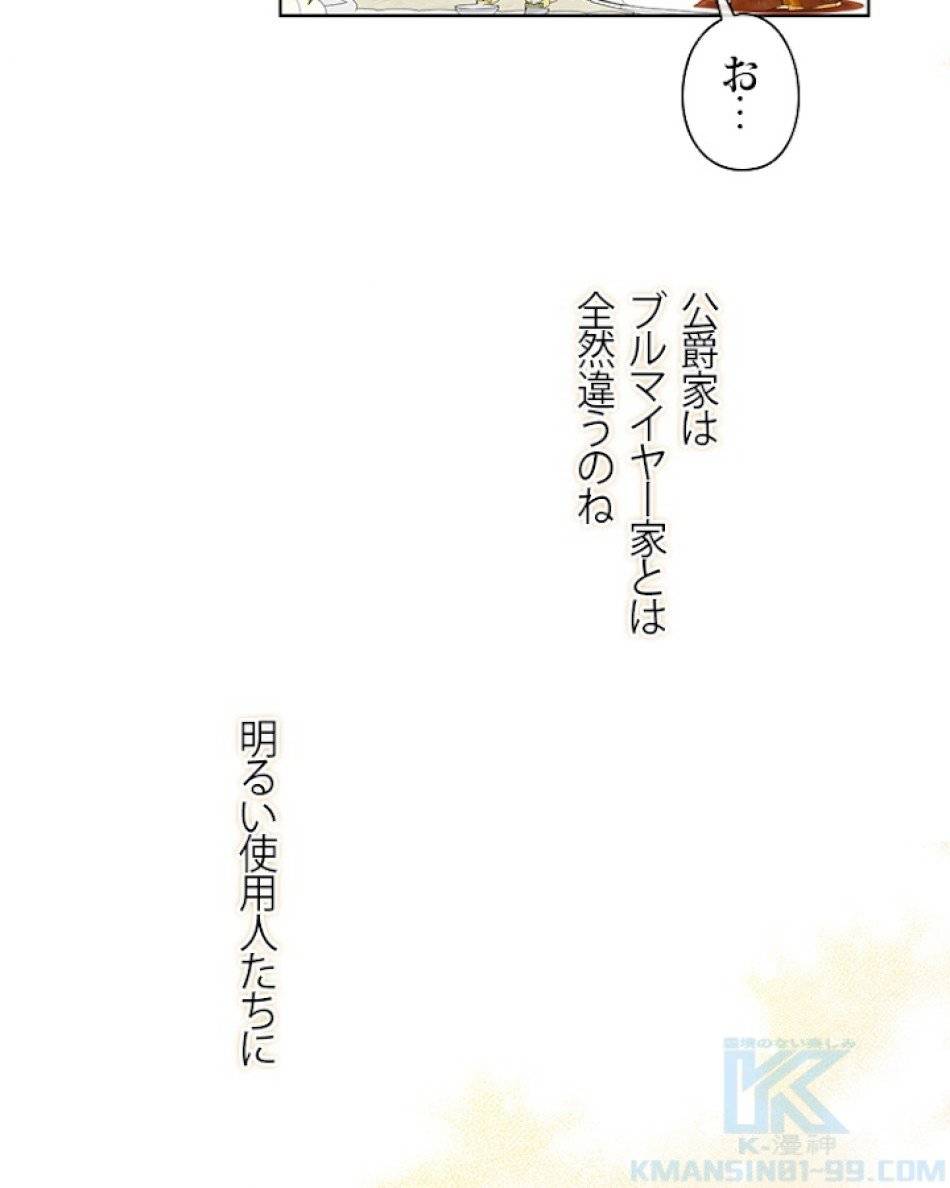 お…
公爵家は
ブルマイヤー家とは
全然違うのね
明るい使用人たちに
国境のない楽しみ
K-漫神
KMANSIN01-99.COM